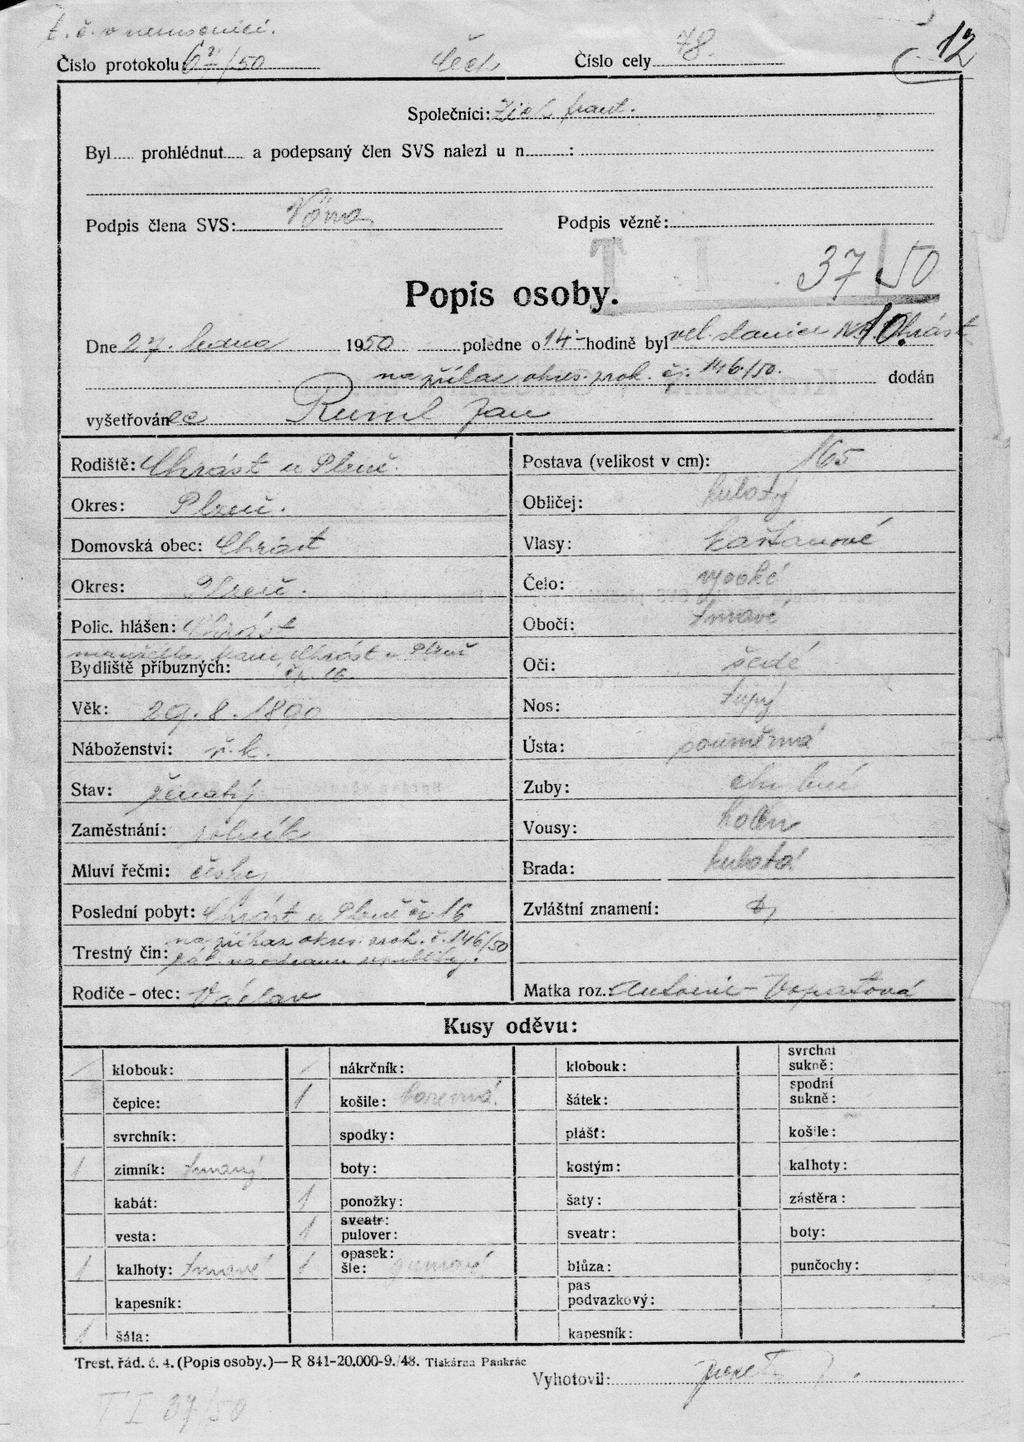 t. č. v nemocnici.
Číslo protokolu 67/50 Čech Číslo cely 78. 12
Společníci: frant.
Byl..... prohlédnut..... a podepsaný člen SVS nalezl u n.........:
Podpis člena SVS: Vóna Podpis vězně:
37/50
Popis osoby.
Dne 27. ledna 1950 poledne o 14 hodině byl vel. stanice Chrást
na příkaz okres. prok. čj. 146/50. dodán
vyšetřován ec Ruml Jan
Rodiště: Chrást u Plzně. Postava (velikost v cm): 165
Okres: Plzeň. Obličej: kulatý
Domovská obec: Chrást Vlasy: kaštanové
Okres: Plzeň. Čelo: vysoké
Polic. hlášen: Chrást Obočí: tmavé
manželka Marie, Chrást u Plzně
Bydliště příbuzných: čp. 16. Oči: šedé
Věk: 29. 8. 1890 Nos: tupý
Náboženství: ř. k. Ústa: souměrná
Stav: ženatý Zuby: chybné
Zaměstnání: rolník Vousy: holen
Mluví řečmi: česky Brada: kulatá
Poslední pobyt: Chrást u Plzně čp. 16 Zvláštní znamení:
Trestný čin: na příkaz okres. prok. č. 146/50
zák. na ochranu republiky.
Rodiče - otec: Václav Matka roz. Antonie - Vopatová
Kusy oděvu:
1 klobouk: 1 nákrčník: klobouk: svrchní sukně:
čepice: 1 košile: barevná. šátek: spodní sukně:
svrchník: spodky: plášť: košile:
1 zimník: tmavý boty: kostým: kalhoty:
kabát: 1 ponožky: šaty: zástěra:
vesta: 1 sveatr: pulover: sveatr: boty:
1 kalhoty: tmavé 1 opasek: šle: gumové blůza: punčochy:
kapesník: pas podvazkový:
1 šála: kapesník:
Trest. řád. č. 4. (Popis osoby.) — R 841-20.000-9./48. Tiskárna Pankrác
Vyhotovil:
T I 37/50